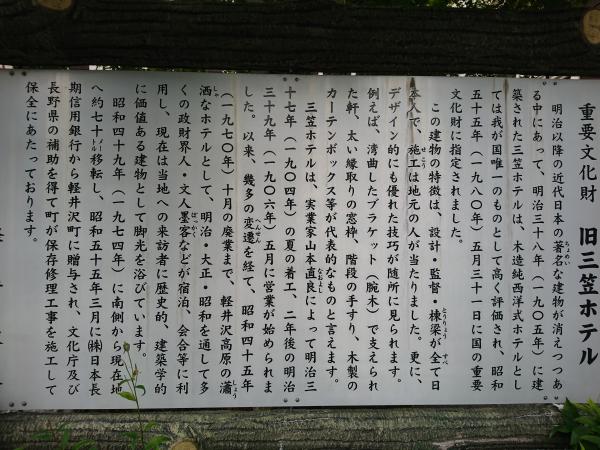 重要文化財 旧三笠ホテル
明治以降の近代日本の著名な建物が消えつつあ
る中にあって、明治三十八年（一九〇五年）に建
築された三笠ホテルは、木造純西洋式ホテルとし
ては我が国唯一のものとして高く評価され、昭和
五十五年（一九八〇年）五月三十一日に国の重要
文化財に指定されました。
この建物の特徴は、設計・監督・棟梁が全て日
本人で、施工は地元の人が当たりました。更に、
デザイン的にも優れた技巧が随所に見られます。
例えば、湾曲したブラケット（腕木）で支えられ
た軒、太い縁取りの窓枠、階段の手すり、木製の
カーテンボックス等が代表的なものと言えます。
三笠ホテルは、実業家山本直良によって明治三
十七年（一九〇四年）の夏の着工、二年後の明治
三十九年（一九〇六年）五月に営業が始められま
した。以来、幾多の変遷を経て、昭和四十五年
（一九七〇年）十月の廃業まで、軽井沢高原の瀟
洒なホテルとして、明治・大正・昭和を通して多
くの政財界人・文人墨客などが宿泊、会合等に利
用し、現在は当地への来訪者に歴史的、建築学的
に価値ある建物として脚光を浴びています。
昭和四十九年（一九七四年）に南側から現在地
へ約七十㍍移転し、昭和五十五年三月に㈱日本長
期信用銀行から軽井沢町に贈与され、文化庁及び
長野県の補助を得て町が保存修理工事を施工して
保全にあたっております。